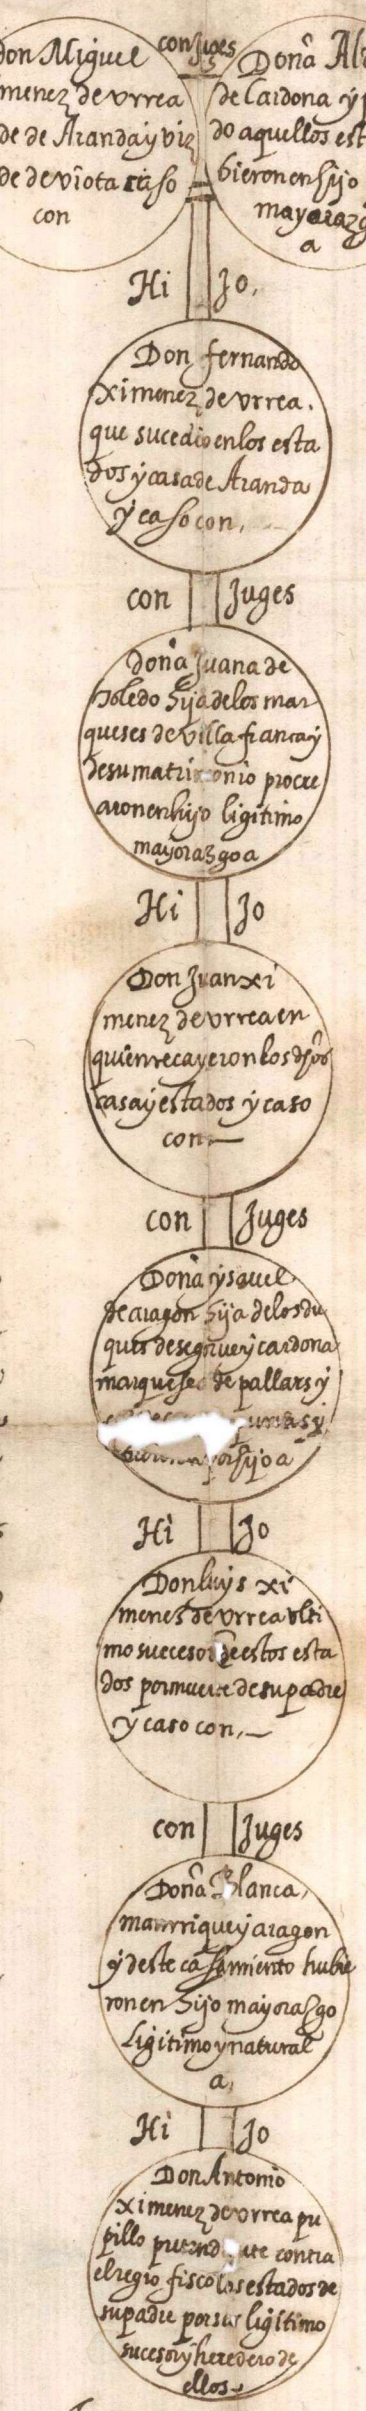 don Miguel
menez de vrrea
de de Aranda y viz
de de viota caso
con
conjuges
Doña
de Cardona y
do aquellos est
bieron en hijo
mayorazg
a
Hi Jo,
Don fernando
Ximenez de vrrea.
que sucedio en los esta
dos y casa de Aranda
y caso con,
con Juges
doña Juana de
Toledo hija de los mar
queses de villa franca y
de su matrimonio procre
aron en hijo ligitimo
mayorazgo a
Hi Jo
Don Juan xi
menez de vrrea en
quien recayeron los dhos
casa y estados y caso
con
con Juges
Doña ysauel
de aragon hija de los du
ques de segorue y cardona
marqueses de pallars y
por hijo a
Hi Jo
Don luys xi
menez de vrrea vlti
mo sucesor de estos esta
dos por muerte de su padre
y caso con,
con Juges
Doña Blanca,
manrrique y aragon
y deste casamiento hubie
ron en hijo mayorazgo
Ligitimo y natural
a,
Hi Jo
Don Antonio
ximenez de vrrea pu
pillo pretendiente contra
el regio fisco los estados de
su padre por su ligitimo
sucesor y heredero de
ellos